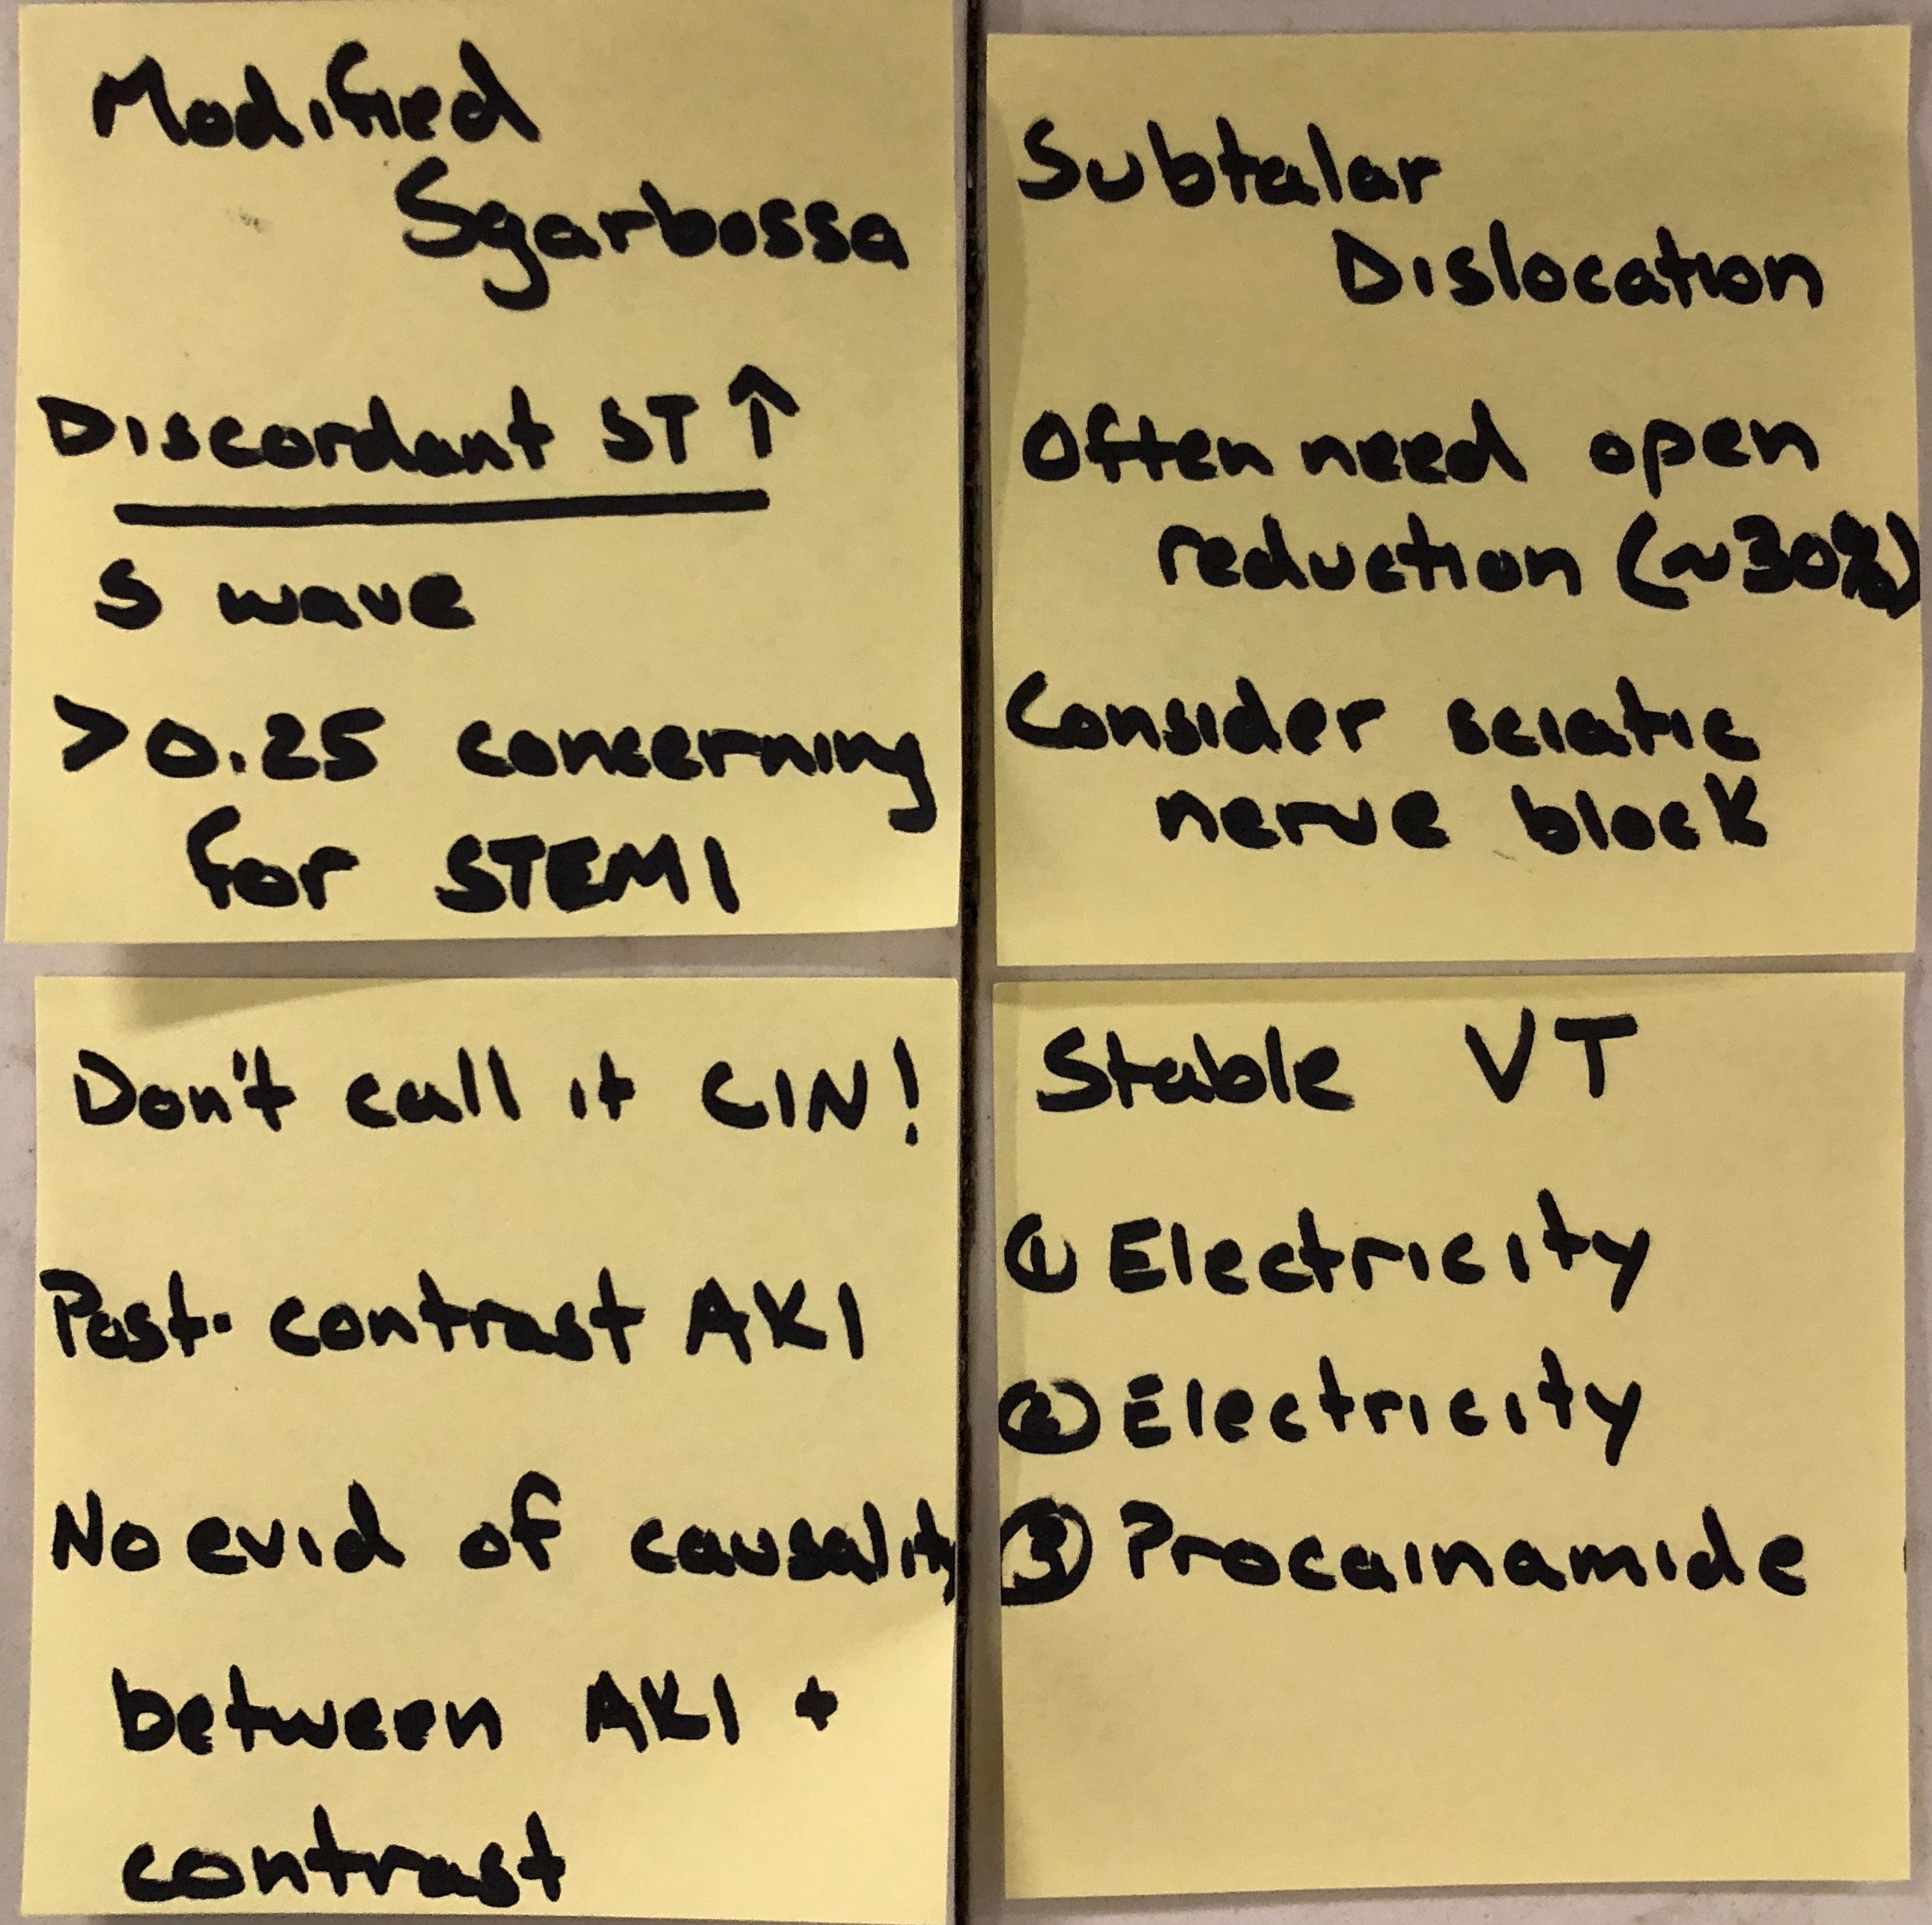 Modified
Sgarbossa
Discordant ST ↑
S wave
>0.25 concerning
for STEMI
Subtalar
Dislocation
Often need open
reduction (~30%)
Consider sciatic
nerve block
Don't call it CIN!
Post-contrast AKI
No evid of causality
between AKI +
contrast
Stable VT
① Electricity
② Electricity
③ Procainamide